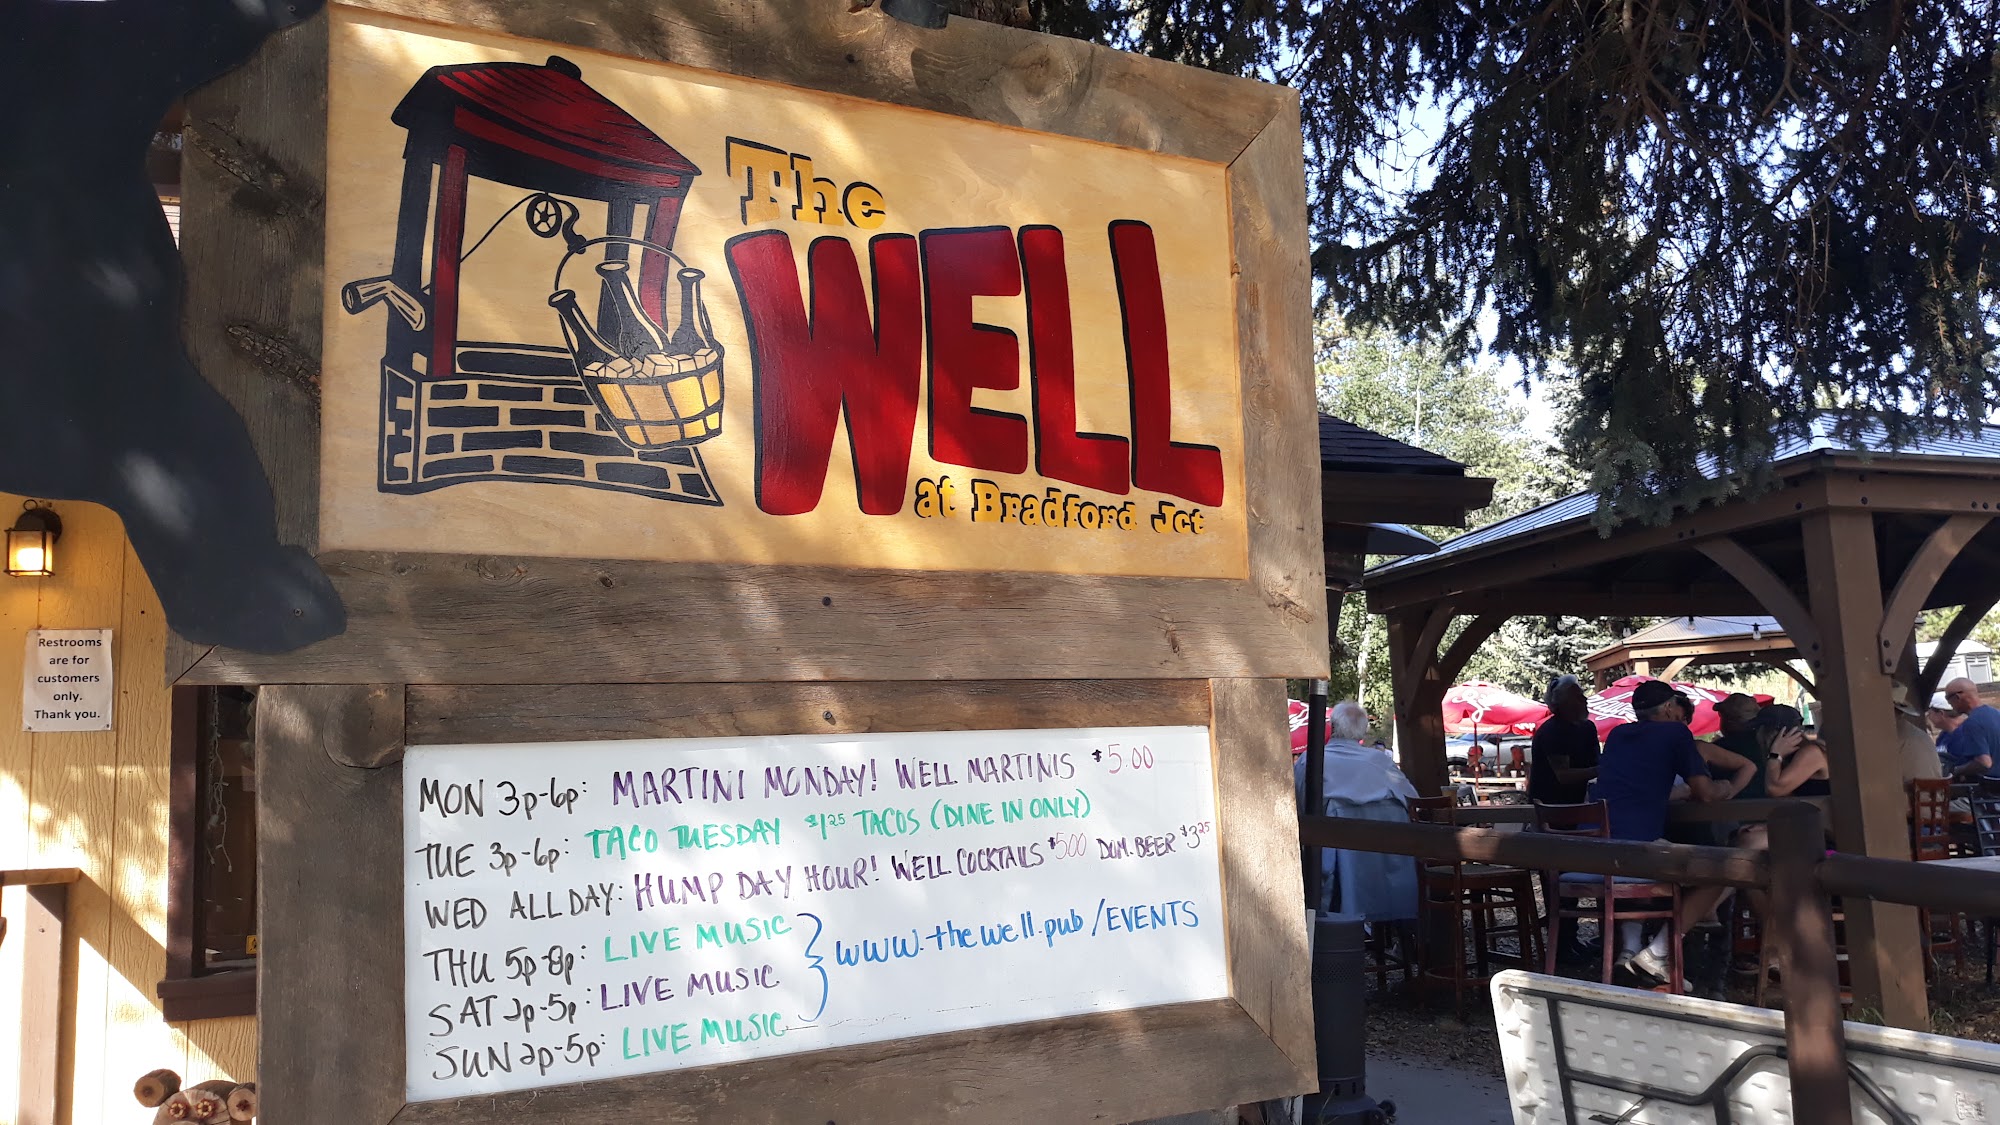 The
WELL
at Bradford Jct
Restrooms
are for
customers
only.
Thank you.
MON 3p-6p: MARTINI MONDAY! WELL MARTINIS $5.00
TUE 3p-6p: TACO TUESDAY $1.25 TACOS (DINE IN ONLY)
WED ALL DAY: HUMP DAY HOUR! WELL COCKTAILS $500 DOM. BEER $3.25
THU 5p-8p: LIVE MUSIC
SAT 2p-5p: LIVE MUSIC
SUN 2p-5p: LIVE MUSIC
www.thewell.pub/EVENTS